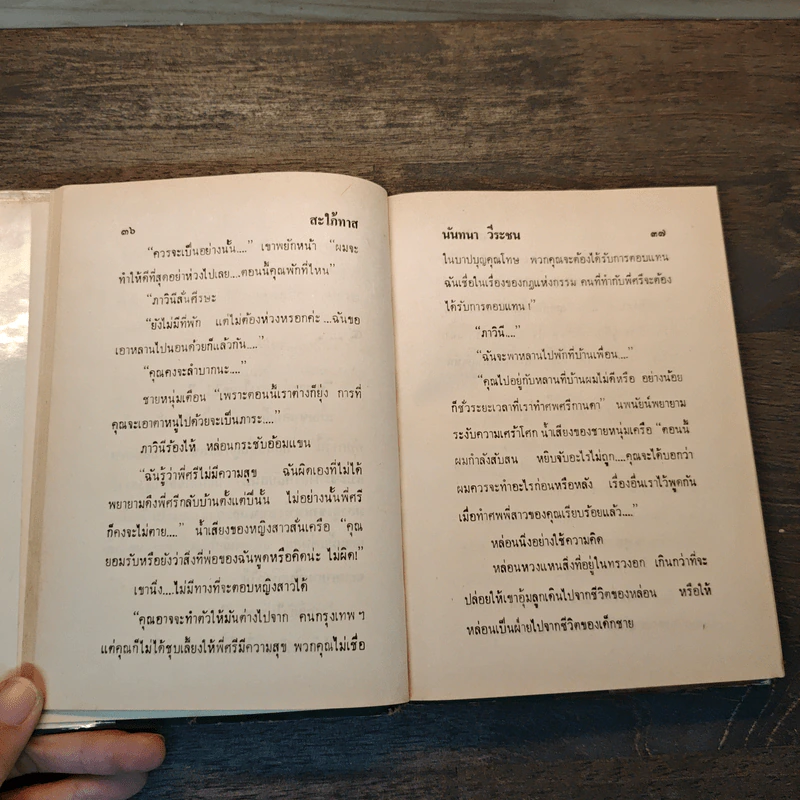 ๓๖ สะใภ้ทาส
“ควรจะเป็นอย่างนั้น....” เขาพยักหน้า “ผมจะ
ทำให้ดีที่สุดอย่าห่วงไปเลย....ตอนนี้คุณพักที่ไหน”
“ภาวินีสั่นศีรษะ
“ยังไม่มีที่พัก แต่ไม่ต้องห่วงหรอกค่ะ ...ฉันขอ
เอาหลานไปนอนด้วยก็แล้วกัน....”
“คุณคงจะลำบากนะ....”
ชายหนุ่มเตือน “เพราะตอนนี้เราต่างก็ยุ่ง การที่
คุณจะเอาตาหนูไปด้วยจะเป็นภาระ....”
ภาวินีร้องไห้ หล่อนกระชับอ้อมแขน
“ฉันรู้ว่าพี่ศรีไม่มีความสุข ฉันผิดเองที่ไม่ได้
พยายามดึงพี่ศรีกลับบ้านตั้งแต่ปีนั้น ไม่อย่างนั้นพี่ศรี
ก็คงจะไม่ตาย....” น้ำเสียงของหญิงสาวสั่นเครือ “คุณ
ยอมรับหรือยังว่าสิ่งที่พ่อของฉันพูดหรือคิดน่ะ ไม่ผิด!”
เขานิ่ง....ไม่มีทางที่จะตอบหญิงสาวได้
“คุณอาจจะทำตัวให้มันต่างไปจาก คนกรุงเทพฯ
แต่คุณก็ไม่ได้ชุบเลี้ยงให้พี่ศรีมีความสุข พวกคุณไม่เชื่อ
นันทนา วีระชน ๓๗
ในบาปบุญคุณโทษ พวกคุณจะต้องได้รับการตอบแทน
ฉันเชื่อในเรื่องของกฎแห่งกรรม คนที่ทำกับพี่ศรีจะต้อง
ได้รับการตอบแทน !”
“ภาวินี....”
“ฉันจะพาหลานไปพักที่บ้านเพื่อน....”
“คุณไปอยู่กับหลานที่บ้านผมไม่ดีหรือ อย่างน้อย
ก็ชั่วระยะเวลาที่เราทำศพศรีกานดา” นพนัยน์พยายาม
ระงับความเศร้าโศก น้ำเสียงของชายหนุ่มเครือ “ตอนนี้
ผมกำลังสับสน หยิบจับอะไรไม่ถูก....คุณจะได้บอกว่า
ผมควรจะทำอะไรก่อนหรือหลัง เรื่องอื่นเราไว้พูดกัน
เมื่อทำศพพี่สาวของคุณเรียบร้อยแล้ว....”
หล่อนนิ่งอย่างใช้ความคิด
หล่อนหวงแหนสิ่งที่อยู่ในทรวงอก เกินกว่าที่จะ
ปล่อยให้เขาอุ้มลูกเดินไปจากชีวิตของหล่อน หรือให้
หล่อนเป็นฝ่ายไปจากชีวิตของเด็กชาย